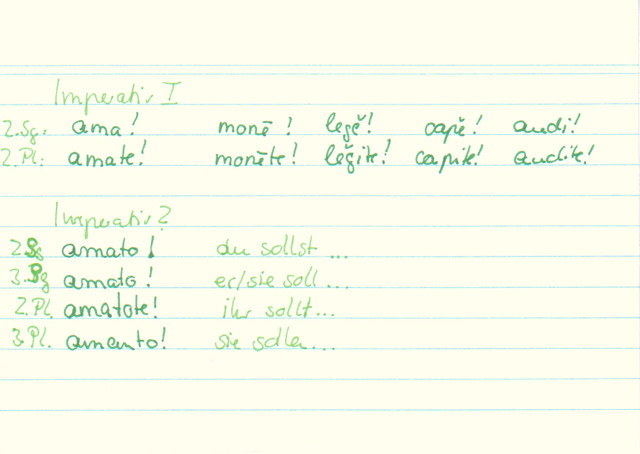 Imperativ I
2.Sg. ama! monē! legĕ! capĕ! audi!
2.Pl. amate! monēte! lĕgite! capite! audite!
Imperativ 2
2.Sg amato! du sollst ...
3.Sg amato! er/sie soll ...
2.Pl. amatote! ihr sollt ...
3.Pl. amanto! sie sollen ...